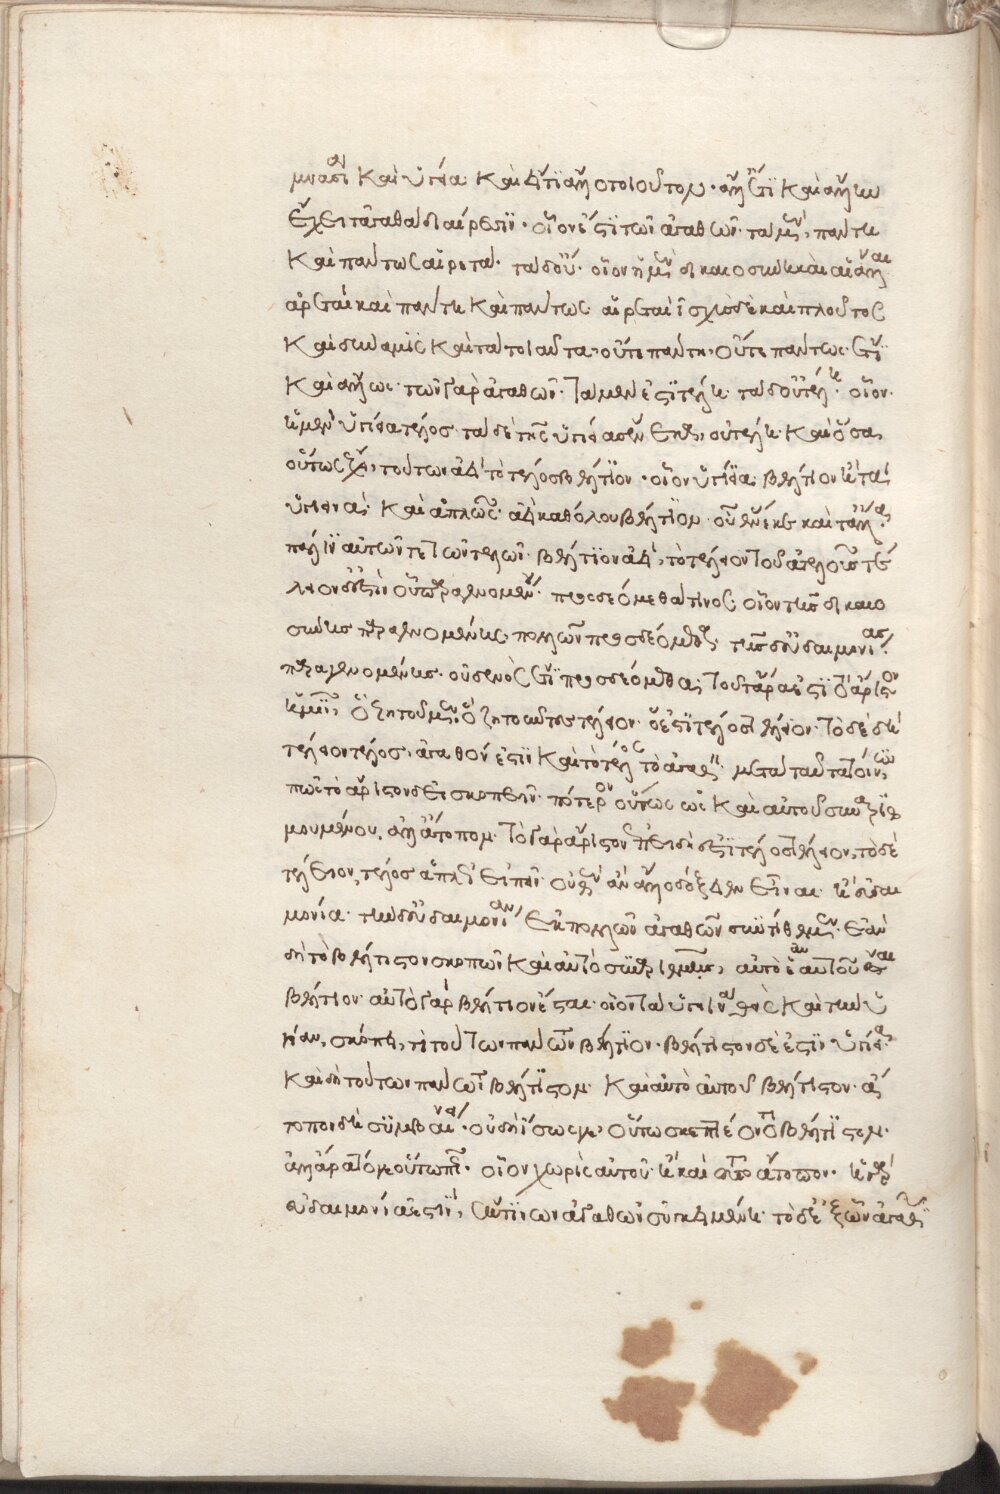 μνασίαν καὶ ὑγίεια καὶ εἴ τι ἄλλο τοιοῦτον. ἀλλ' ἔτι καὶ ἄλλην
ἔχει τἀγαθὰ διαίρεσιν. οἷον ἐστὶ τῶν ἀγαθῶν τὰ μὲν, πάντη
καὶ πάντως αἱρετά. τὰ δ' οὔ. οἷον ἡ μὲν δικαιοσύνη καὶ αἱ ἄλλαι
ἀρεταὶ καὶ πάντη καὶ πάντως αἱρεταί. ἰσχὺς δὲ καὶ πλοῦτος
καὶ δύναμις καὶ τὰ τοιαῦτα, οὔτε πάντη, οὔτε πάντως. ἔτι
καὶ ἄλλως. τῶν γὰρ ἀγαθῶν τὰ μέν ἐστι τέλη. τὰ δ' οὐ τέλη. οἷον
ἡ μὲν ὑγίεια τέλος. τὰ δὲ τῆς ὑγιείας ἕνεκα, οὐ τέλη. καὶ ὅσα
οὕτως ἔχει, τούτων ἀεὶ τὸ τέλος βέλτιον. οἷον ἡ ὑγίεια βέλτιον ἢ τὰ
ὑγιεινά. καὶ ἁπλῶς ἀεὶ καθόλου βέλτιον οὗ ἕνεκεν καὶ τἆλλα.
πάλιν αὐτῶν τε τῶν τελῶν βέλτιον ἀεὶ, τὸ τέλειον τοῦ ἀτελοῦς. τέ
λειον δ' ἐστὶν οὗ παραγενομένου προσδεόμεθα τινὸς. οἷον τῆς δικαιο
σύνης παραγενομένης, πολλῶν προσδεόμεθα. τῆς δ' εὐδαιμονίας
παραγενομένης οὐδενὸς ἔτι προσδεόμεθα. τοῦτ' ἄρα ἐστὶ τὸ ἄριστον
ἡμῖν, ὃ ζητοῦμεν. ὃ ζητοῦμεν τέλειον. ὅ ἐστι τέλος τέλειον. τὸ δὲ δὴ
τέλειον τέλος, ἀγαθόν ἐστιν καὶ τὸ τέλος τῶν ἀγαθῶν. μετὰ ταῦτα τοίνυν,
πῶς τὸ ἄριστον δεῖ σκοπεῖν. πότερον οὕτως ὡς καὶ αὐτοῦ συναριθ
μουμένου, ἀλλ' ἄτοπον. τὸ γὰρ ἄριστον ἐπειδή ἐστι τέλος τέλειον, τὸ δὲ
τέλειον τέλος ἁπλῶς εἰπεῖν οὐδὲν ἂν ἄλλο δόξειεν εἶναι ἢ εὐδαι
μονία. τὴν δ' εὐδαιμονίαν ἐκ πολλῶν ἀγαθῶν συντίθεμεν. ἐὰν
δὴ τὸ βέλτιστον σκοπῶν καὶ αὐτὸ συναριθμῇς, αὐτὸ ἑαυτοῦ ἔσται
βέλτιον. αὐτὸ γὰρ βέλτιον ἔσται. οἷον τὰ ὑγιεινὰ θεὶς καὶ τὴν ὑ
γίειαν, σκόπει, τί τούτων πάντων βέλτιον. βέλτιστον δέ ἐστιν ὑγίεια.
καὶ δὴ τούτων πάντων βέλτιστον καὶ αὐτὸ αὑτοῦ βέλτιστον. ἄ
τοπον δὴ συμβαίνει. οὐ δὴ ἴσως γε οὕτω σκεπτέον τὸ βέλτιστον.
ἀλλ' ἆρα τό γε οὕτω πως. οἷον χωρὶς αὐτοῦ. ἢ καὶ τοῦτο ἄτοπον. ἡ γὰρ
εὐδαιμονία ἐστὶν, ἔκ τινων ἀγαθῶν συγκειμένη. τὸ δὲ ἐξ ὧν ἀγαθῶν